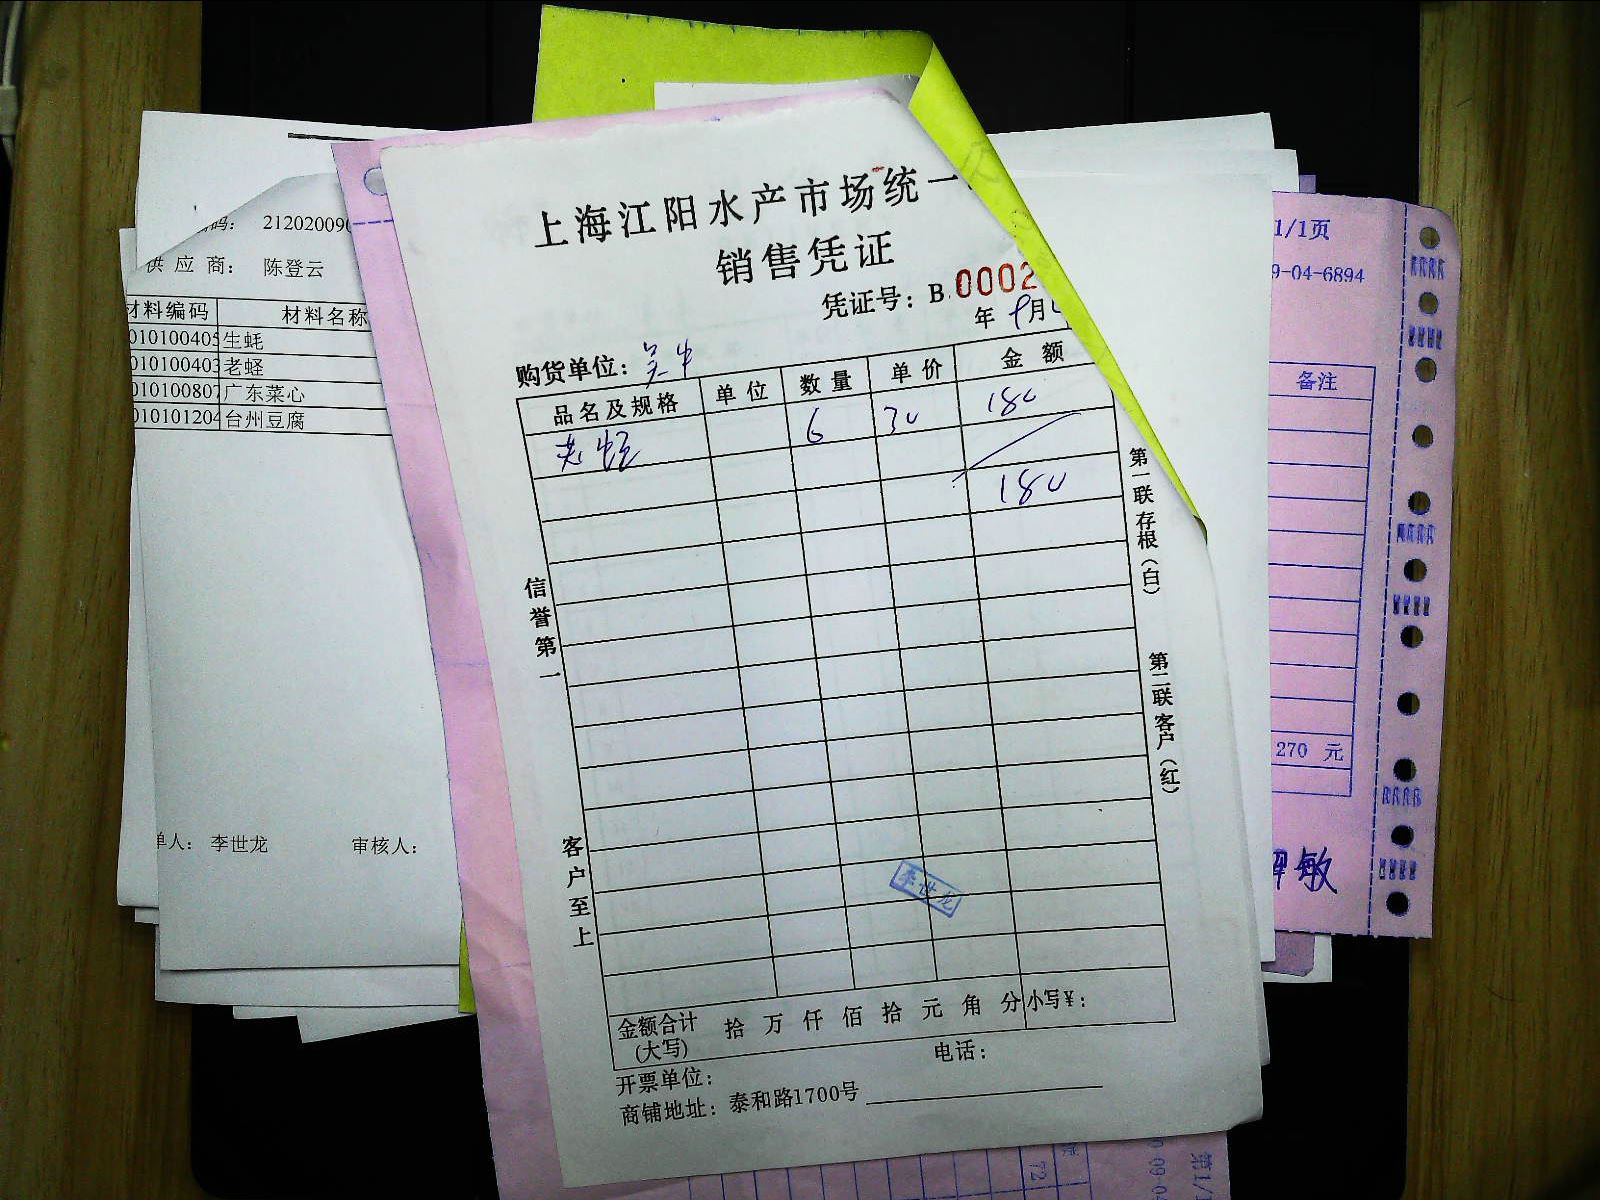 上海江阳水产市场统一
销售凭证
凭证号：B.0002
年 9月
购货单位：吴中
品名及规格 单位 数量 单价 金额
老蛏 6 30 180
180
信誉第一
客户至上
第一联存根（白）
第二联客户（红）
李世龙
金额合计(大写) 拾 万 仟 佰 拾 元 角 分 小写￥：
开票单位： 电话：
商铺地址：泰和路1700号
码： 212020090
供应商： 陈登云
材料编码 材料名称
010100405 生蚝
010100403 老蛏
010100807 广东菜心
010101204 台州豆腐
单人： 李世龙 审核人：
1/1页
9-04-6894
备注
270 元
敏
72
第1/1